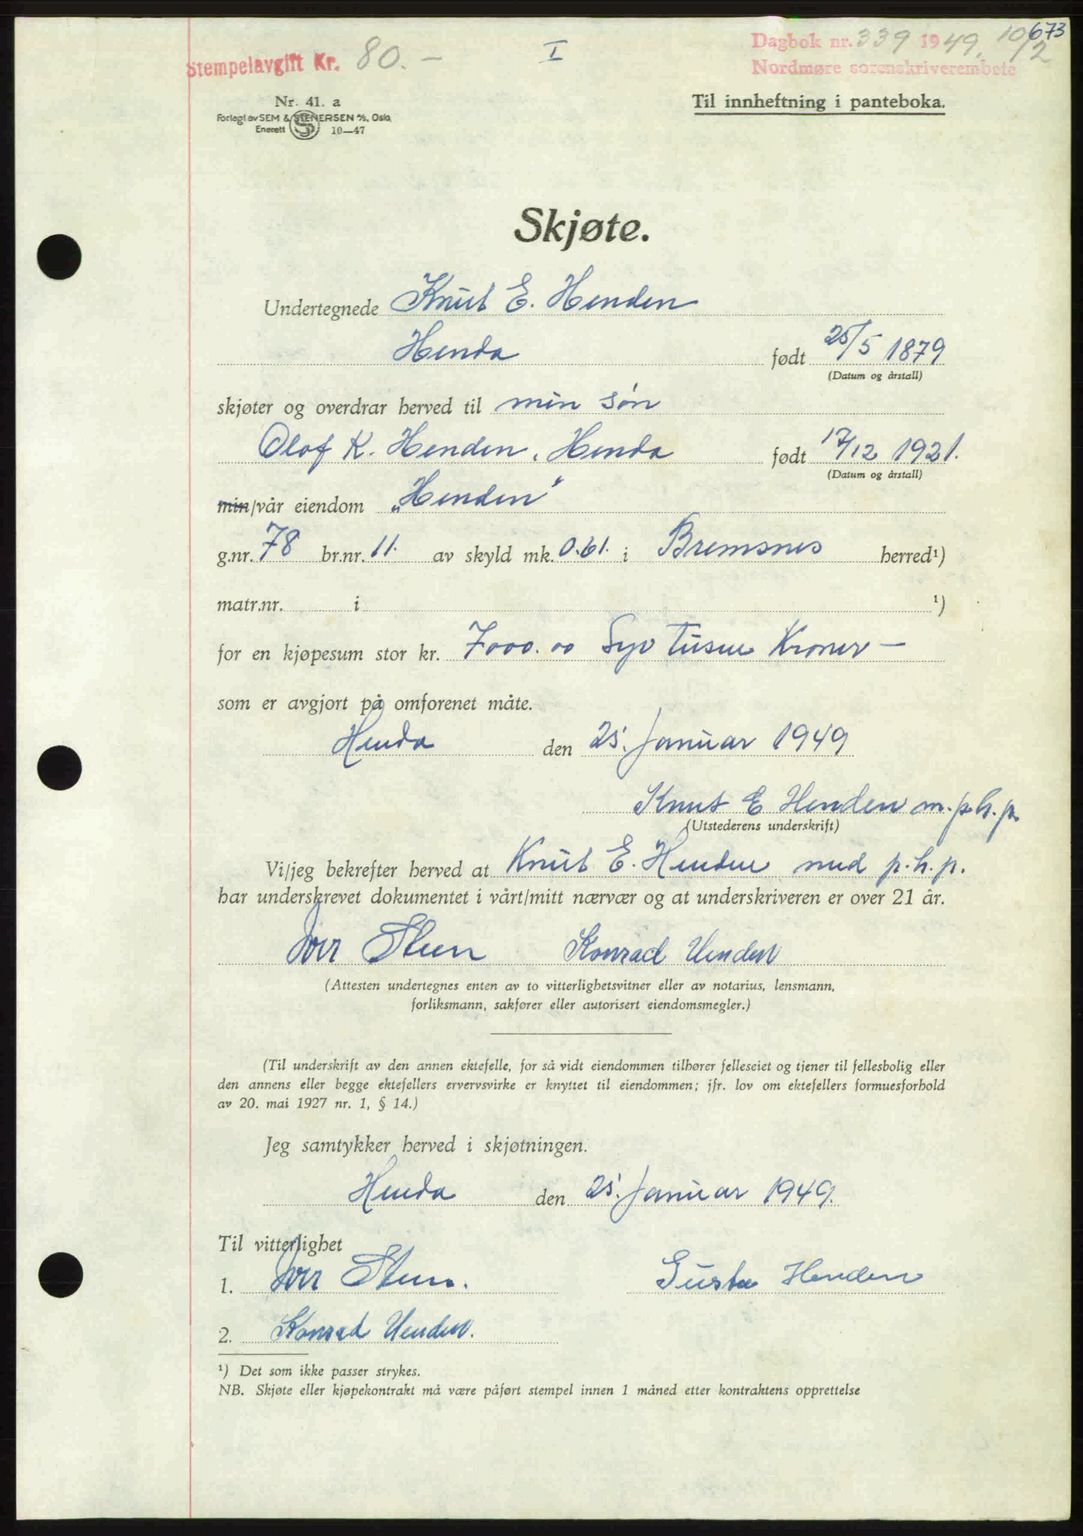 673
Stempelavgift Kr. 80.-
I
Dagbok nr. 339 1949. 10/2
Nordmøre sorenskriverembete
Nr. 41. a
Forlagt av SEM & STENERSEN A/S, Oslo.
Enerett S 10—47
Til innheftning i panteboka.
Skjøte.
Undertegnede Knut E. Henden
Henda født 25/5 1879
(Datum og årstall)
skjøter og overdrar herved til min søn
Olaf K. Henden, Henda født 17/12 1921.
(Datum og årstall)
min/vår eiendom „Henden"
g.nr. 78 br.nr. 11. av skyld mk. 0.61. i Bremsnes herred¹)
matr.nr. i ¹)
for en kjøpesum stor kr. 7000.00 Syv tusen Kroner —
som er avgjort på omforenet måte.
Henda den 25. Januar 1949
Knut E Henden m.p.h.p.
(Utstederens underskrift)
Vi/jeg bekrefter herved at Knut E. Henden med p.h.p.
har underskrevet dokumentet i vårt/mitt nærvær og at underskriveren er over 21 år.
Konrad Henden
(Attesten undertegnes enten av to vitterlighetsvitner eller av notarius, lensmann,
forliksmann, sakfører eller autorisert eiendomsmegler.)
(Til underskrift av den annen ektefelle, for så vidt eiendommen tilhører felleseiet og tjener til fellesbolig eller
den annens eller begge ektefellers ervervsvirke er knyttet til eiendommen; jfr. lov om ektefellers formuesforhold
av 20. mai 1927 nr. 1, § 14.)
Jeg samtykker herved i skjøtningen.
Henda den 25. Januar 1949.
Til vitterlighet
1. Gusta Henden
2. Konrad Henden.
¹) Det som ikke passer strykes.
NB. Skjøte eller kjøpekontrakt må være påført stempel innen 1 måned etter kontraktens opprettelse